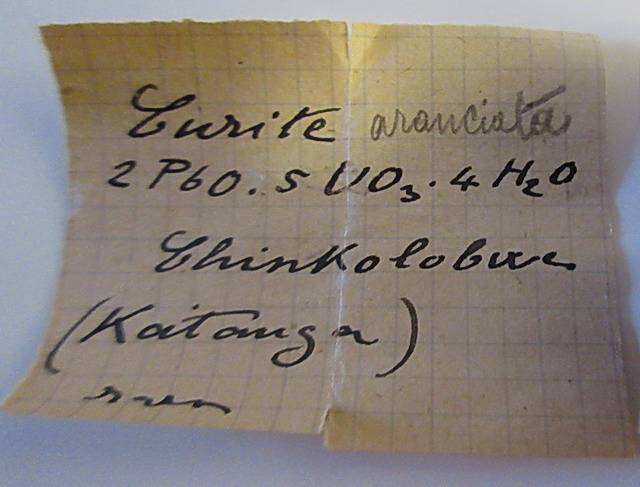 Curite aranciata
2 PbO. 5 UO₃. 4 H₂O
Chinkolobwe
(Katanga)